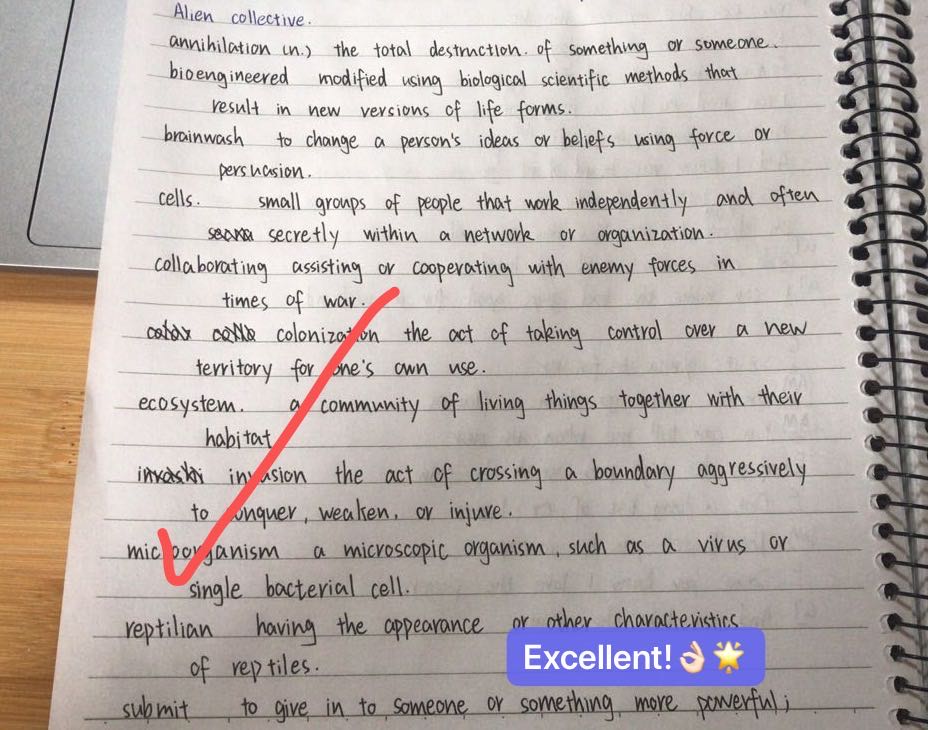 Alien collective.
annihilation (n.) the total destruction. of something or someone.
bioengineered modified using biological scientific methods that
result in new versions of life forms.
brainwash to change a person's ideas or beliefs using force or
persuasion.
cells. small groups of people that work independently and often
secretly within a network or organization.
collaborating assisting or cooperating with enemy forces in
times of war.
colonization the act of taking control over a new
territory for one's own use.
ecosystem. a community of living things together with their
habitat
invasion the act of crossing a boundary aggressively
to conquer, weaken, or injure.
microorganism a microscopic organism, such as a virus or
single bacterial cell.
reptilian having the appearance or other characteristics
of reptiles.
Excellent!👌🏻🌟
submit to give in to someone or something more powerful;